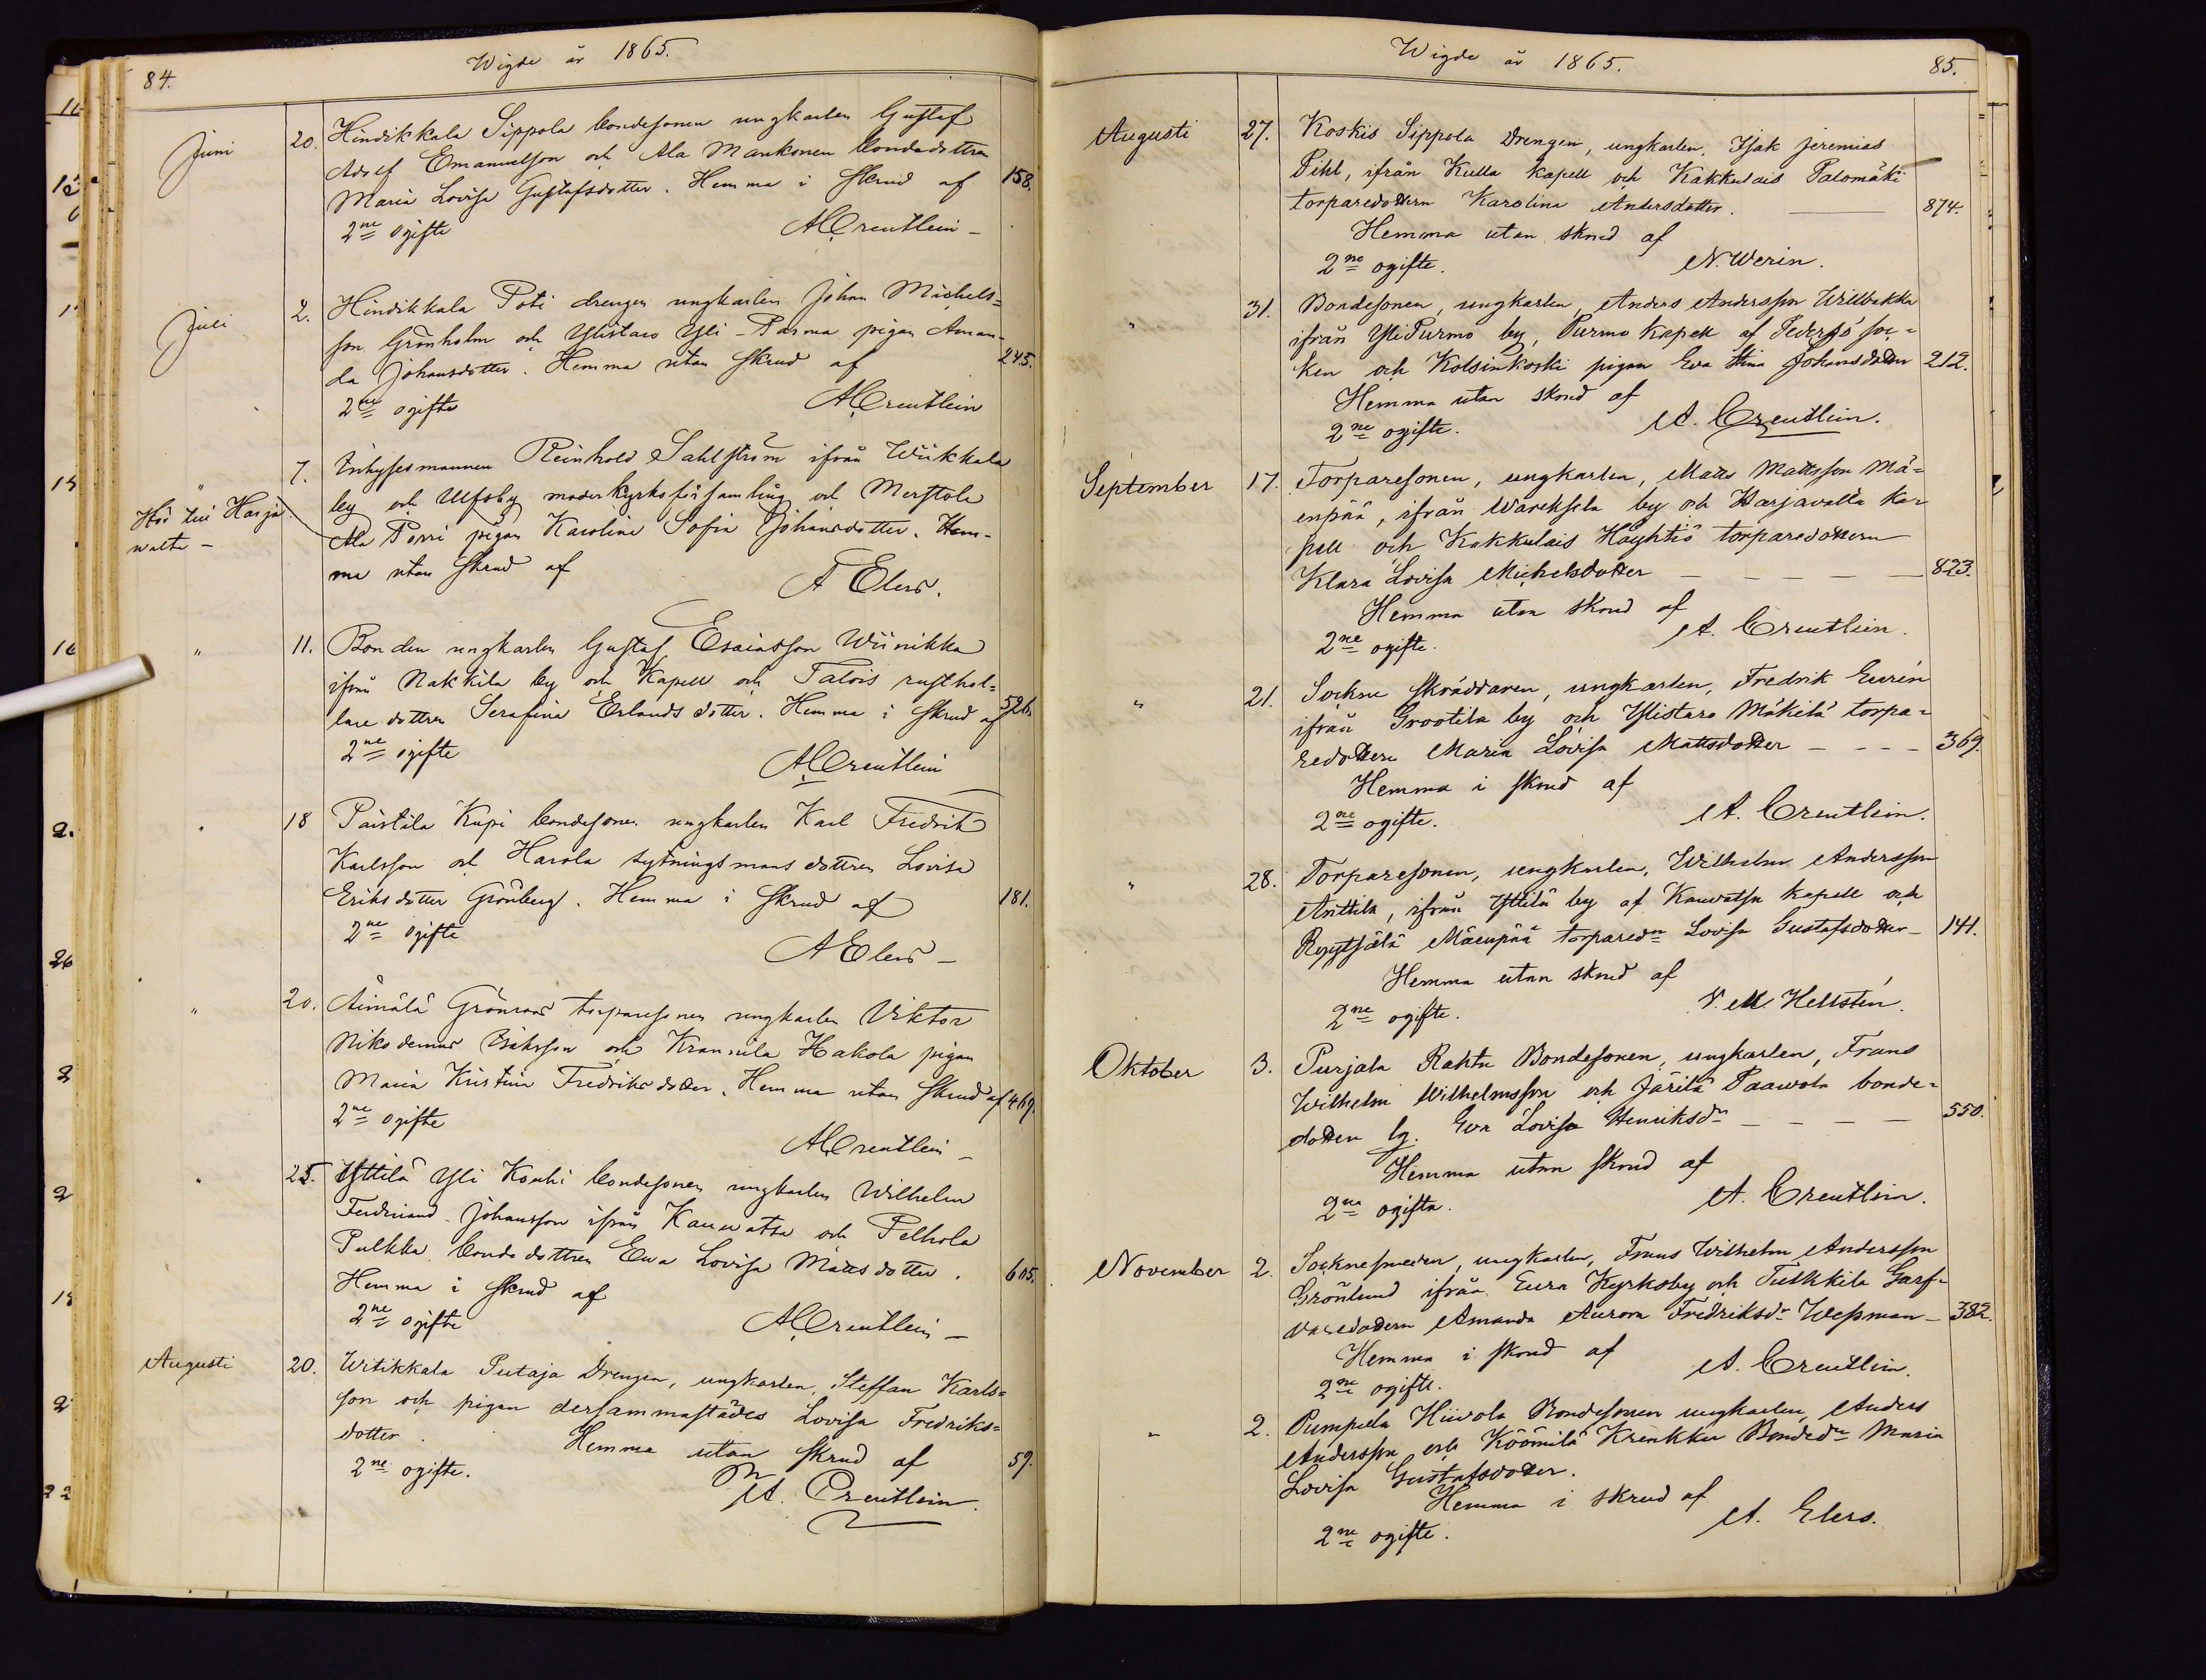 84.
Wigde år 1865.
Juni 20. Hindikkala Sippola bondesonen ungkarlen Gustaf
Adolf Emanuelson och Ala Mankonen bondedottren
Maria Lovisa Gustafsdotter. Hemma i skrud af 158.
2ne ogifte A Creutlein
Juli 2. Hindikkala Poti drengen ungkarlen Johan Michels=
son Grönholm och Ylistaro Yli-Parma pigan Aman-
da Johansdotter. Hemma utan skrud af 245.
2ne ogifte A Creutlein
" 7. Inhysesmannen Reinhold Sahlström ifrån Wiikkala
by och Ulfsby moderkyrkoförsamling och Merstola
Hör till Harja
walta -
Ala Perri pigan Karolina Sofia Johansdotter. Hem-
ma utan skrud af
A Elers.
" 11. Bonden ungkarlen Gustaf Esaiasson Wiinikka
ifrån Nakkila by och Kapell och Talois rusthol=
lare dottren Serafina Erlandsdotter. Hemma i skrud af 526.
2ne ogifte A Creutlein
" 18 Paistila Kupi bondesonen ungkarlen Karl Fredrik
Karlsson och Harola sytningsmans dottren Lovisa
Eriksdotter Grönberg. Hemma i skrud af 181.
2ne ogifte
A Elers
" 20. Äimälä Grönroos torparesonen ungkarlen Viktor
Nikodemus Isaksson och Krannila Hakola pigan
Maria Kristina Fredriksdotter. Hemma utan skrud af 469.
2ne ogifte
A Creutlein
" 25. Yttilä Yli Kouhi bondesonen ungkarlen Wilhelm
Ferdinand Johansson ifrån Kauvatsa och Pelhola
Pulkka bondedottren Ewa Lovisa Mattsdotter. 605.
Hemma i skrud af
2ne ogifte A Creutlein
Augusti 20. Witikkala Putaja Drengen, ungkarlen, Steffan Karls=
son och pigan dersammastädes Lovisa Fredriks=
dotter. Hemma utan skrud af 59.
2ne ogifte. A. Creutlein.
Wigde år 1865.
85.
Augusti 27. Koskis Sippola Drengen, ungkarlen, Isak Jeremias
Pihl, ifrån Kulla Kapell och Kakkulais Palomäki
torparedottern Karolina Andersdotter. 874.
Hemma utan skrud af
2ne ogifte. N. Werin.
" 31. Bondesonen, ungkarlen, Anders Andersson Willbakka
ifrån YliPurmo by, Purmo Kapell af Pedersö soc=
ken och Kolsinkoski pigan Eva Stina Johansdotter 212.
Hemma utan skrud af
2ne ogifte. A. Creutlein.
September 17. Torparesonen, ungkarlen, Matts Mattsson Mä=
enpää, ifrån Wareksela by och Harjavalta Ka=
pell och Kakkulais Häyhtiö torparedottern
Klara Lovisa Michelsdotter 823.
Hemma utan skrud af
2ne ogifte. A. Creutlein.
" 21. Sockne skräddaren, ungkarlen, Fredrik Eurén
ifrån Grootila by och Ylistaro Mäkilä torpa=
redottern Maria Lovisa Mattsdotter 369.
Hemma i skrud af
2ne ogifte. A. Creutlein.
" 28. Torparesonen, ungkarlen, Wilhelm Andersson
Anttila, ifrån Yttilä by af Kauvatsa kapell och
Mäenpää torparedn Lovisa Gustafsdotter 141.
Hemma utan skrud af
2ne ogifte. Hellstén.
Oktober 3. Purjala Rahtu Bondesonen, ungkarlen, Frans
Wilhelm Wilhelmsson och Järilä Paawola bonde=
dottern Eva Lovisa Henriksdn 550.
Hemma utan skrud af
2ne ogifta. A. Creutlein.
November 2. Socknesmeden, ungkarlen, Frans Wilhelm Andersson
Grönlund ifrån Eura Kyrkoby och Tulkkila Garf=
varedottern Amanda Aurora Fredriksdn Wessman 382.
Hemma i skrud af
2ne ogifte. A. Creutlein.
" 2. Pumpula Hiivola Bondesonen ungkarlen, Anders
Andersson och Köömilä Krenkku Bondedn Maria
Lovisa Gustafsdotter.
Hemma i skrud af
2ne ogifte. A. Elers.